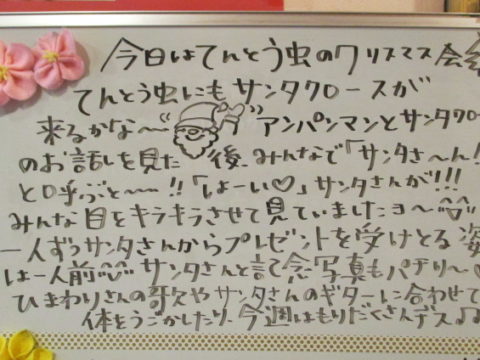 今日はてんとう虫のクリスマス会
てんとう虫にもサンタクロースが
来るかな〜 アンパンマンとサンタクロー
のお話しを見た後、みんなで「サンタさ〜ん!
と呼ぶと〜〜!!「はーい♡」サンタさんが!!!
みんな目をキラキラさせて見ていましたヨ〜
一人ずつサンタさんからプレゼントを受けとる姿
は一人前 サンタさんと記念写真もパチリ〜♡
ひまわりさんの歌やサンタさんのギターに合わせて
体をうごかしたり、今週はもりだくさんデス♪♫